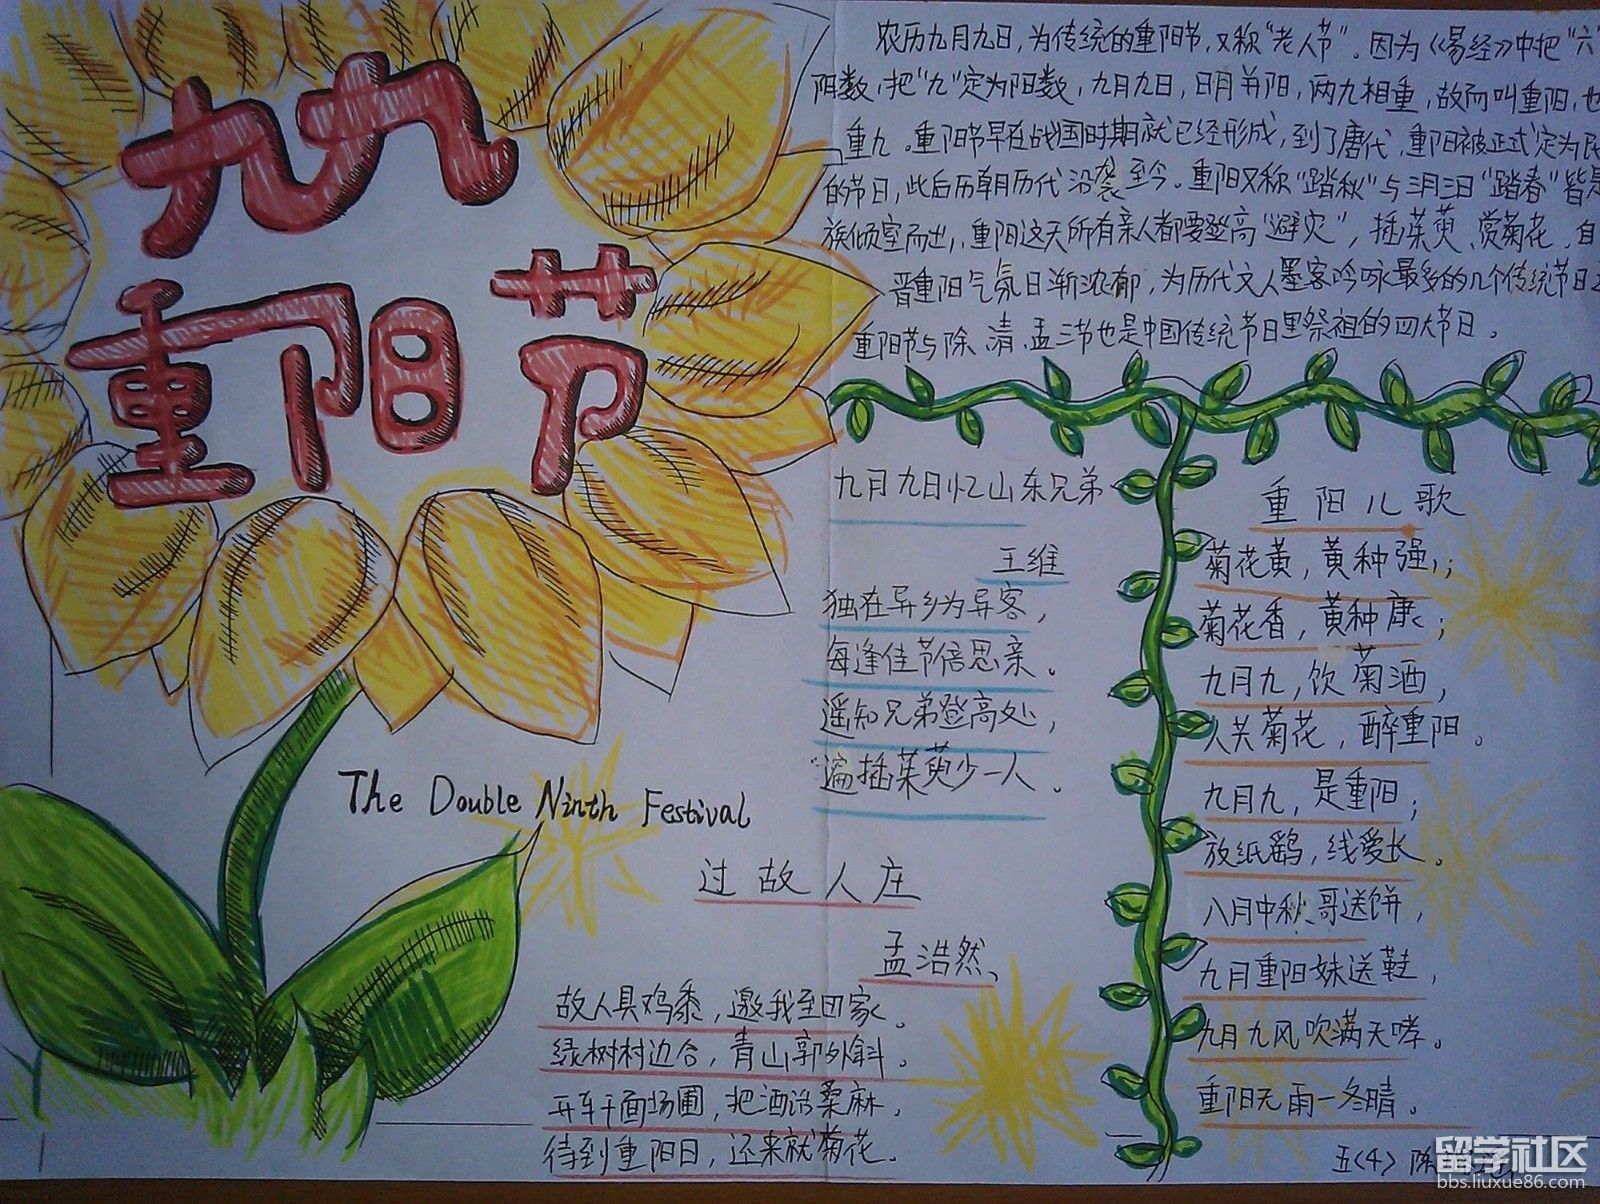 九九
重阳节
农历九月九日，为传统的重阳节，又称“老人节”。因为《易经》中把“六”
阴数，把“九”定为阳数，九月九日，日月并阳，两九相重，故而叫重阳，也
重九。重阳节早在战国时期就已经形成，到了唐代，重阳被正式定为民
的节日，此后历朝历代沿袭至今。重阳又称“踏秋”与三月三日“踏春”皆是
族倾室而出，重阳这天所有亲人都要登高“避灾”，插茱萸、赏菊花。自
晋重阳气氛日渐浓郁，为历代文人墨客吟咏最多的几个传统节日之
重阳节与除、清、盂三节也是中国传统节日里祭祖的四大节日。
九月九日忆山东兄弟
王维
独在异乡为异客，
每逢佳节倍思亲。
遥知兄弟登高处，
遍插茱萸少一人。
重阳儿歌
菊花黄，黄种强；
菊花香，黄种康；
九月九，饮菊酒，
人共菊花，醉重阳。
九月九，是重阳；
放纸鹞，线爱长。
八月中秋哥送饼，
九月重阳妹送鞋，
九月九风吹满天哮。
重阳无雨一冬晴。
The Double Ninth Festival
过故人庄
孟浩然
故人具鸡黍，邀我至田家。
绿树村边合，青山郭外斜。
开车干面场圃，把酒话桑麻。
待到重阳日，还来就菊花。
五〈4〉陈
留学社区
bbs.liuxue86.com